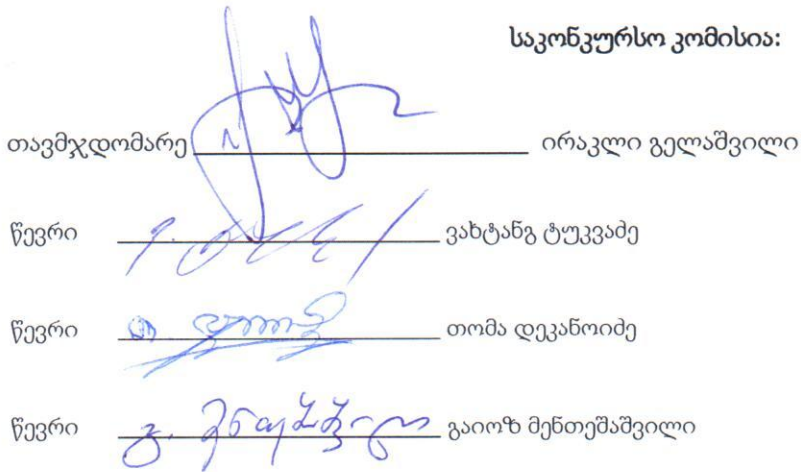 საკონკურსო კომისია:
თავმჯდომარე ირაკლი გელაშვილი
წევრი ვახტანგ ტუკვაძე
წევრი თომა დეკანოიძე
წევრი გაიოზ მენთეშაშვილი